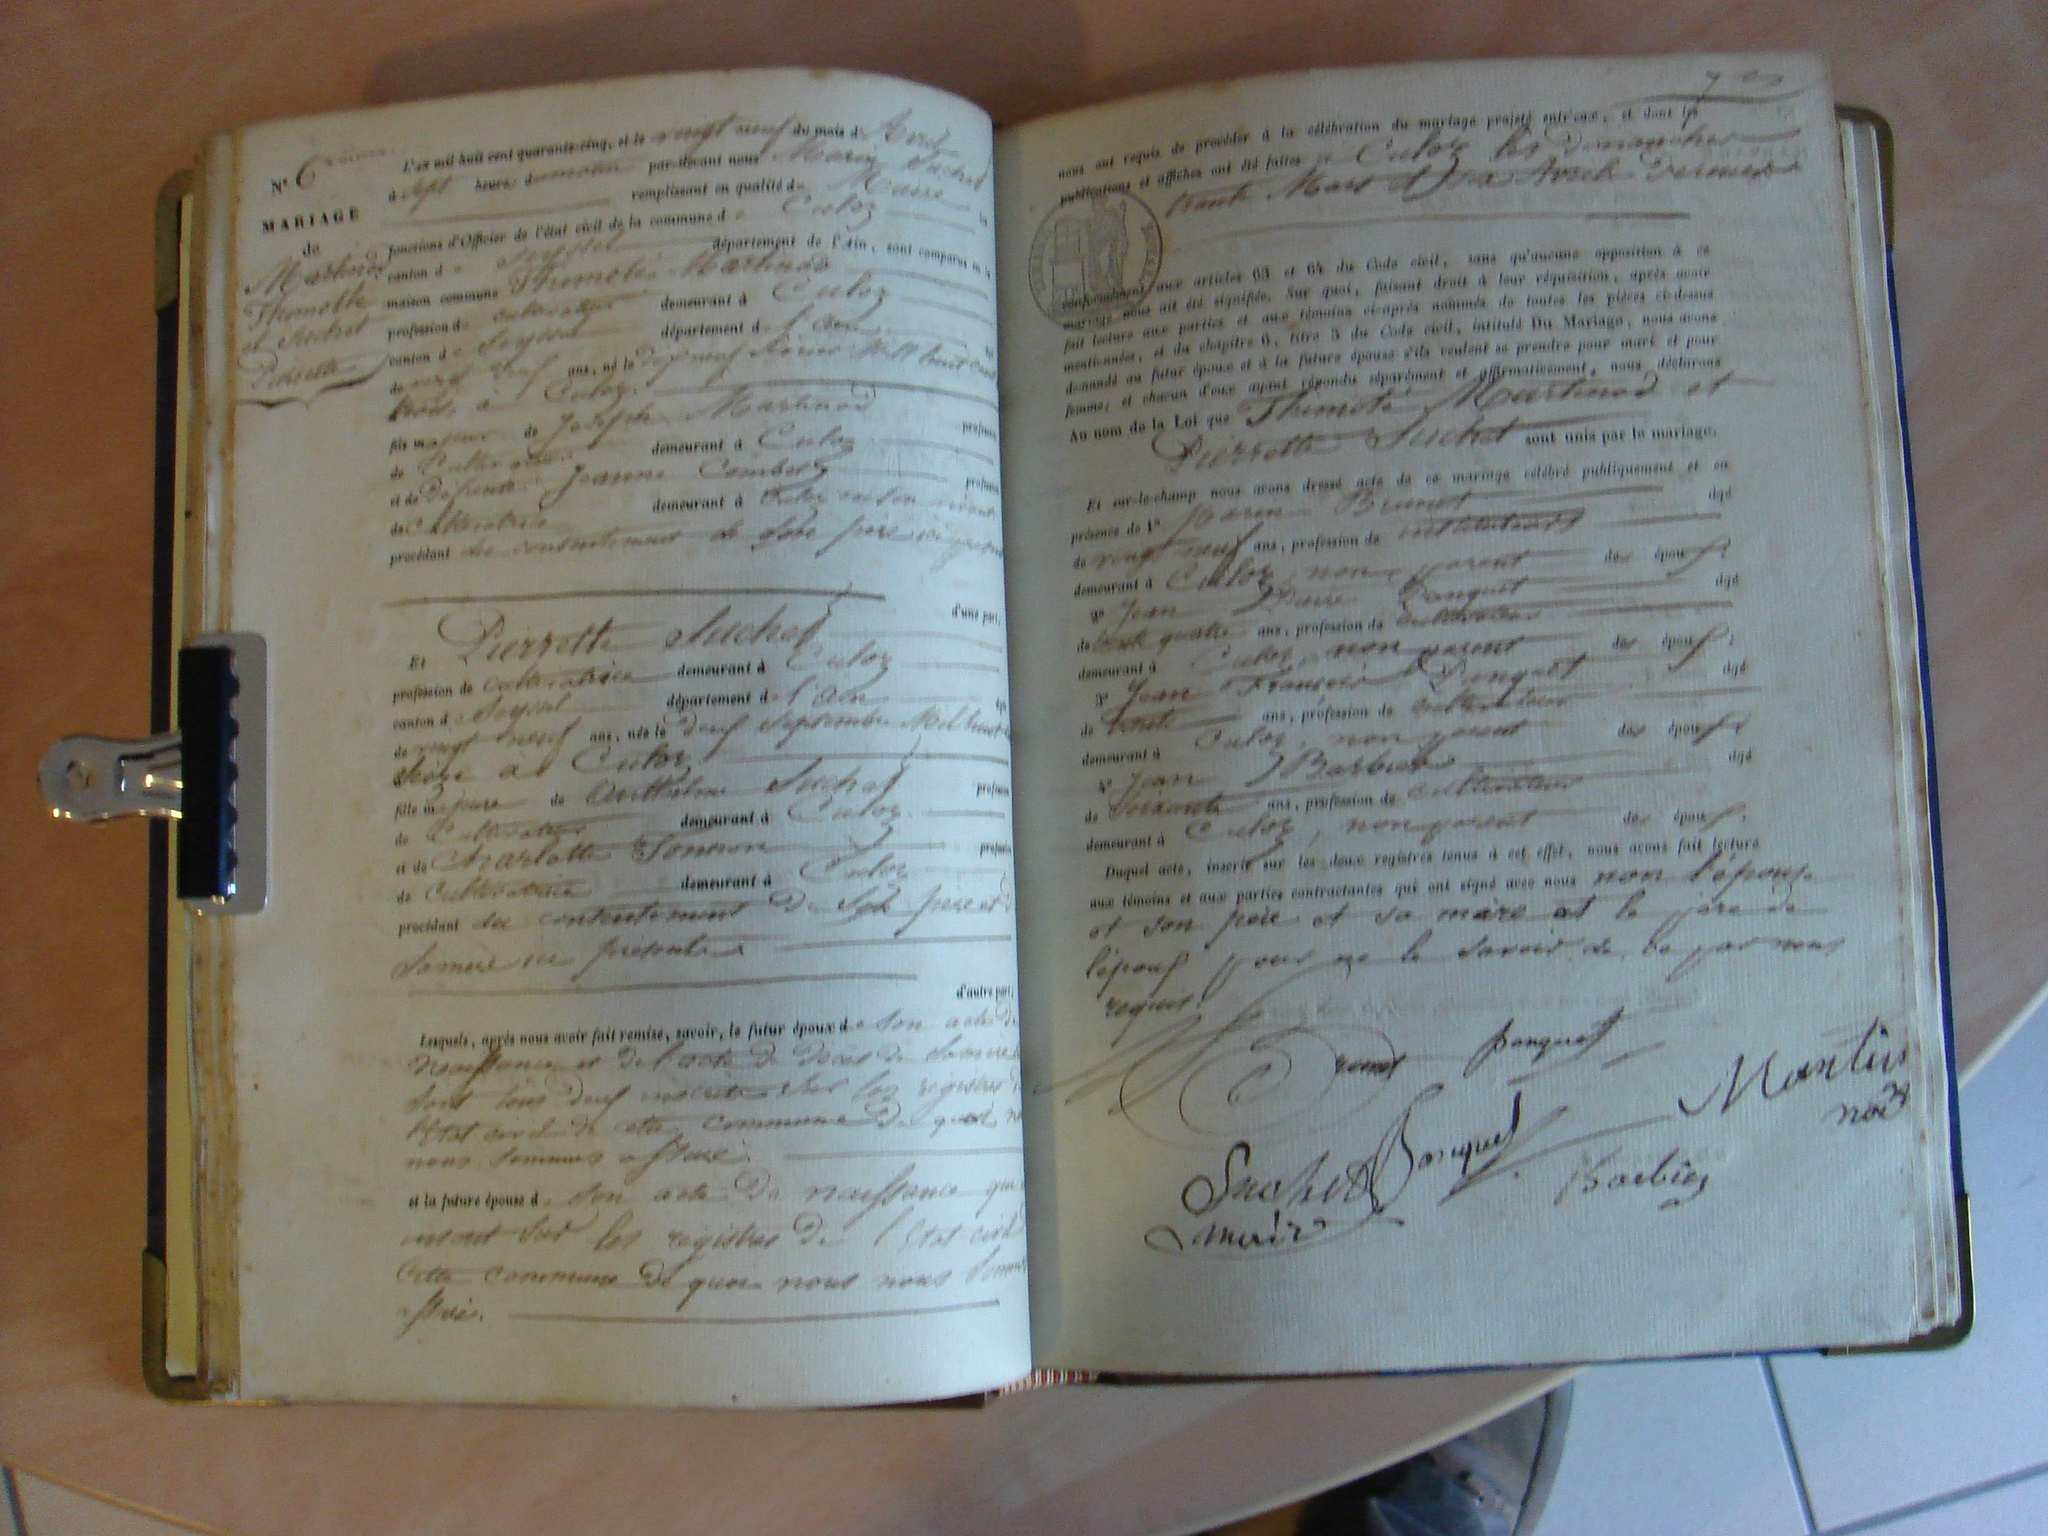 N° 6
MARIAGE
de
Martinod
Thimothé
et Suchet
Pierrette
L'an mil huit cent quarante-cinq, et le vingt neuf du mois d'Avril
à sept heures du matin par-devant nous Marin Suchet
remplissant en qualité de Maire
fonctions d'Officier de l'état civil de la commune de Culoz
canton de Seyssel département de l'Ain, sont comparus en la
maison commune Thimoté Martinod
profession de cultivateur demeurant à Culoz
canton de Seyssel département de l'Ain
de vingt neuf ans, né le dix neuf février Mil huit cent
à Culoz
fils majeur de Joseph Martinod profession
de Cultivateur demeurant à Culoz
et de défunte Jeanne profession
de Cultivatrice demeurant à Culoz en son vivant
procédant du consentement de son père
d'une part,
Et Pierrette Suchet
profession de cultivatrice demeurant à Culoz
canton de Seyssel département de l'Ain
de vingt neuf ans, née le deux Septembre Mil huit
seize à Culoz
fille majeure de Anthelme Suchet profession
de Cultivateur demeurant à Culoz
et de Charlotte profession
de Cultivatrice demeurant à Culoz
procédant du consentement de père et de
sa mère ici présents
d'autre part,
Lesquels, après nous avoir fait remise, savoir, le futur époux de son acte de
naissance et de l'acte de décès de sa mère
sont tous deux inscrits sur les registres de
l'Etat civil de cette commune de quoi
nous sommes assuré.
et la future épouse de son acte de naissance
inscrit sur les registres de l'Etat civil
cette commune de quoi nous nous sommes
assuré.
nous ont requis de procéder à la célébration du mariage projeté entr'eux, et dont les
publications et affiches ont été faites à Culoz les dimanches
trente Mars et six Avril derniers
conformément aux articles 63 et 64 du Code civil, sans qu'aucune opposition à ce
mariage nous ait été signifiée. Sur quoi, faisant droit à leur réquisition, après avoir
fait lecture aux parties et aux témoins ci-après nommés de toutes les pièces ci-dessus
mentionnées, et du chapitre 6, titre 5 du Code civil, intitulé Du Mariage, nous avons
demandé au futur époux et à la future épouse s'ils veulent se prendre pour mari et pour
femme; et chacun d'eux ayant répondu séparément et affirmativement, nous déclarons
Au nom de la Loi que Thimoté Martinod et
Pierrette Suchet sont unis par le mariage.
Et sur-le-champ nous avons dressé acte de ce mariage célébré publiquement et en
présence de 1° Marin Brunet âgé
de vingt neuf ans, profession de instituteur
demeurant à Culoz, non parent des époux;
2° Jean Pierre Bonquet âgé
de trente quatre ans, profession de cultivateur
demeurant à Culoz, non parent des époux;
3° Jean François Bonquet âgé
de trente ans, profession de cultivateur
demeurant à Culoz, non parent des époux;
4° Jean Barbier âgé
de soixante ans, profession de cultivateur
demeurant à Culoz, non parent des époux.
Duquel acte, inscrit sur les deux registres tenus à cet effet, nous avons fait lecture
aux témoins et aux parties contractantes qui ont signé avec nous non l'épouse
et son père et sa mère et le père de
l'époux pour ne le savoir de ce par nous
requis.
Brunet Bonquet
Martin
nod
Suchet Bonquet
Barbier
maire